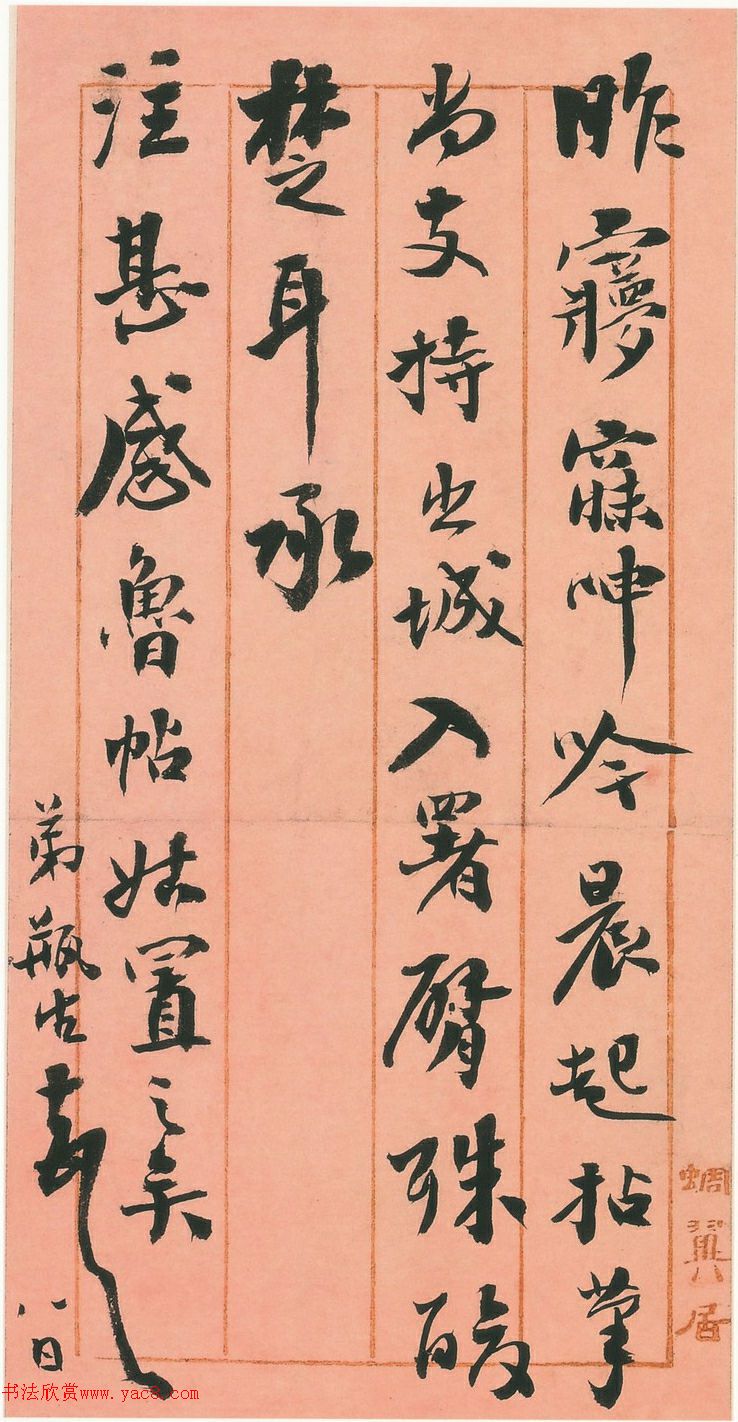 昨㝱寐呻吟晨起拈筆
尚支持出城入署臂殊酸
楚耳承
注甚感魯帖姑置之矣
弟瓶生
八日
蜩翼居
书法欣赏www.yac8.com